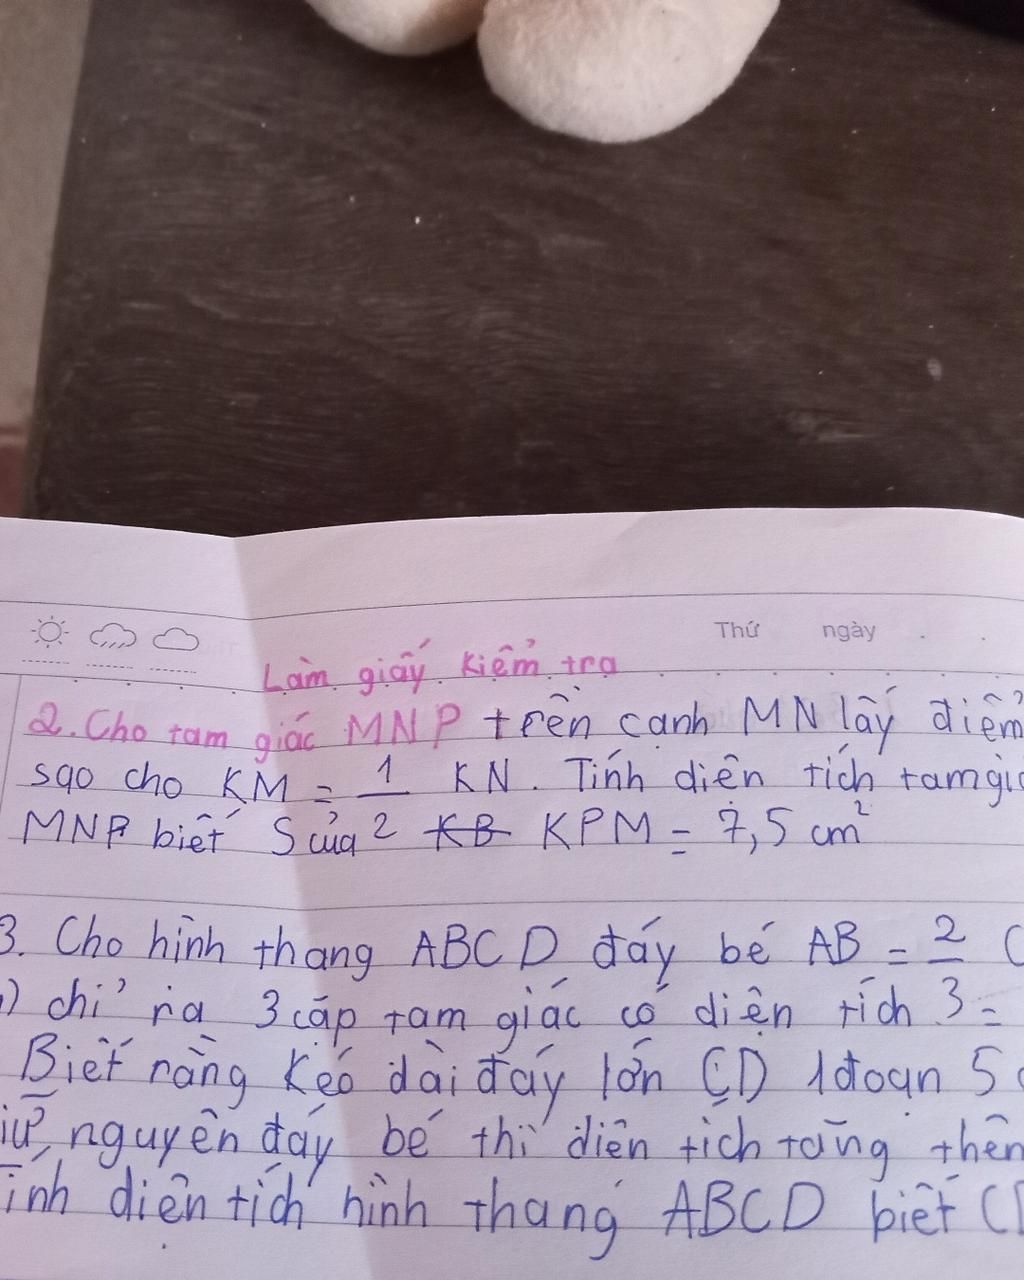 Thứ ngày
Làm giấy kiểm tra
2. Cho tam giác MNP trên cạnh MN lấy điểm
sao cho KM = 1/2 KN. Tính diện tích tam giá
MNP biết S của KB KPM = 7,5 cm²
3. Cho hình thang ABCD đáy bé AB = 2/3 C
) chỉ ra 3 cặp tam giác có diện tích =
Biết rằng kéo dài đáy lớn CD 1 đoạn 5
iữ nguyên đáy bé thì diện tích tăng thên
ính diện tích hình thang ABCD biết CD